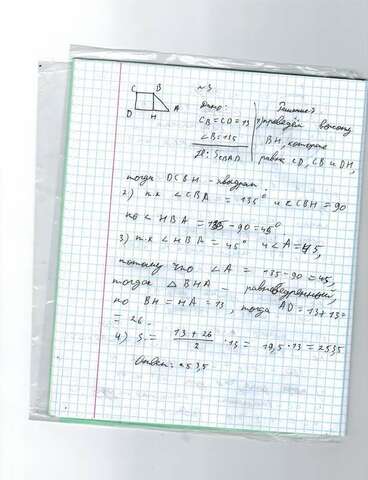 №3
C B
D H A
Дано:
CB = CD = 13
∠B = 135
Н: S CBAD
Решение
1) проведём высоту
BH, которая
равна CD, CB и DH,
тогда DCBH - квадрат.
2) т.к ∠CBA = 135° и ∠CBH = 90
то ∠HBA = 135 - 90 = 45°
3) т.к ∠HBA = 45° и ∠A = 45,
потому что ∠A = 135 - 90 = 45,
тогда △BHA - равнобедренный,
то BH = HA = 13, тогда AD = 13 + 13 =
= 26.
4) S = (13 + 26)/2 · 13 = 19,5 · 13 = 253,5
Ответ: 253,5